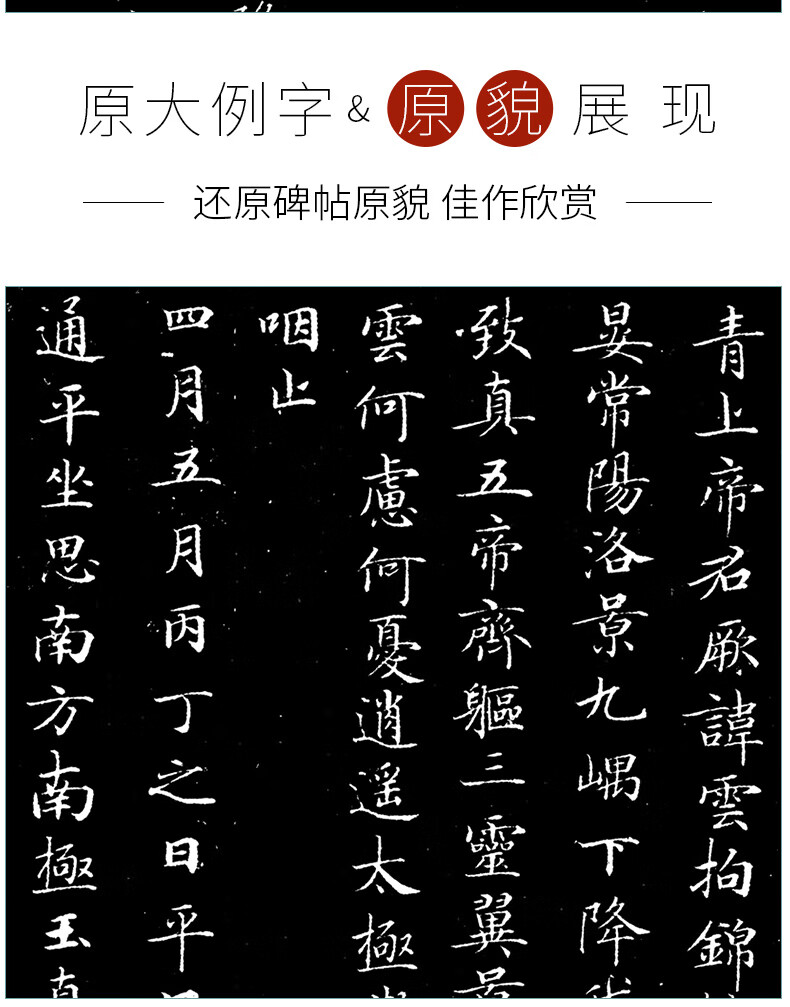 原大例字&原貌展现
还原碑帖原貌 佳作欣赏
青上帝君厥諱雲拘錦
晏常陽洛景九嵎下降
致真五帝齊軀三靈翼景
雲何慮何憂逍遥太極
咽止
四月五月丙丁之日平
通平坐思南方南極玉真